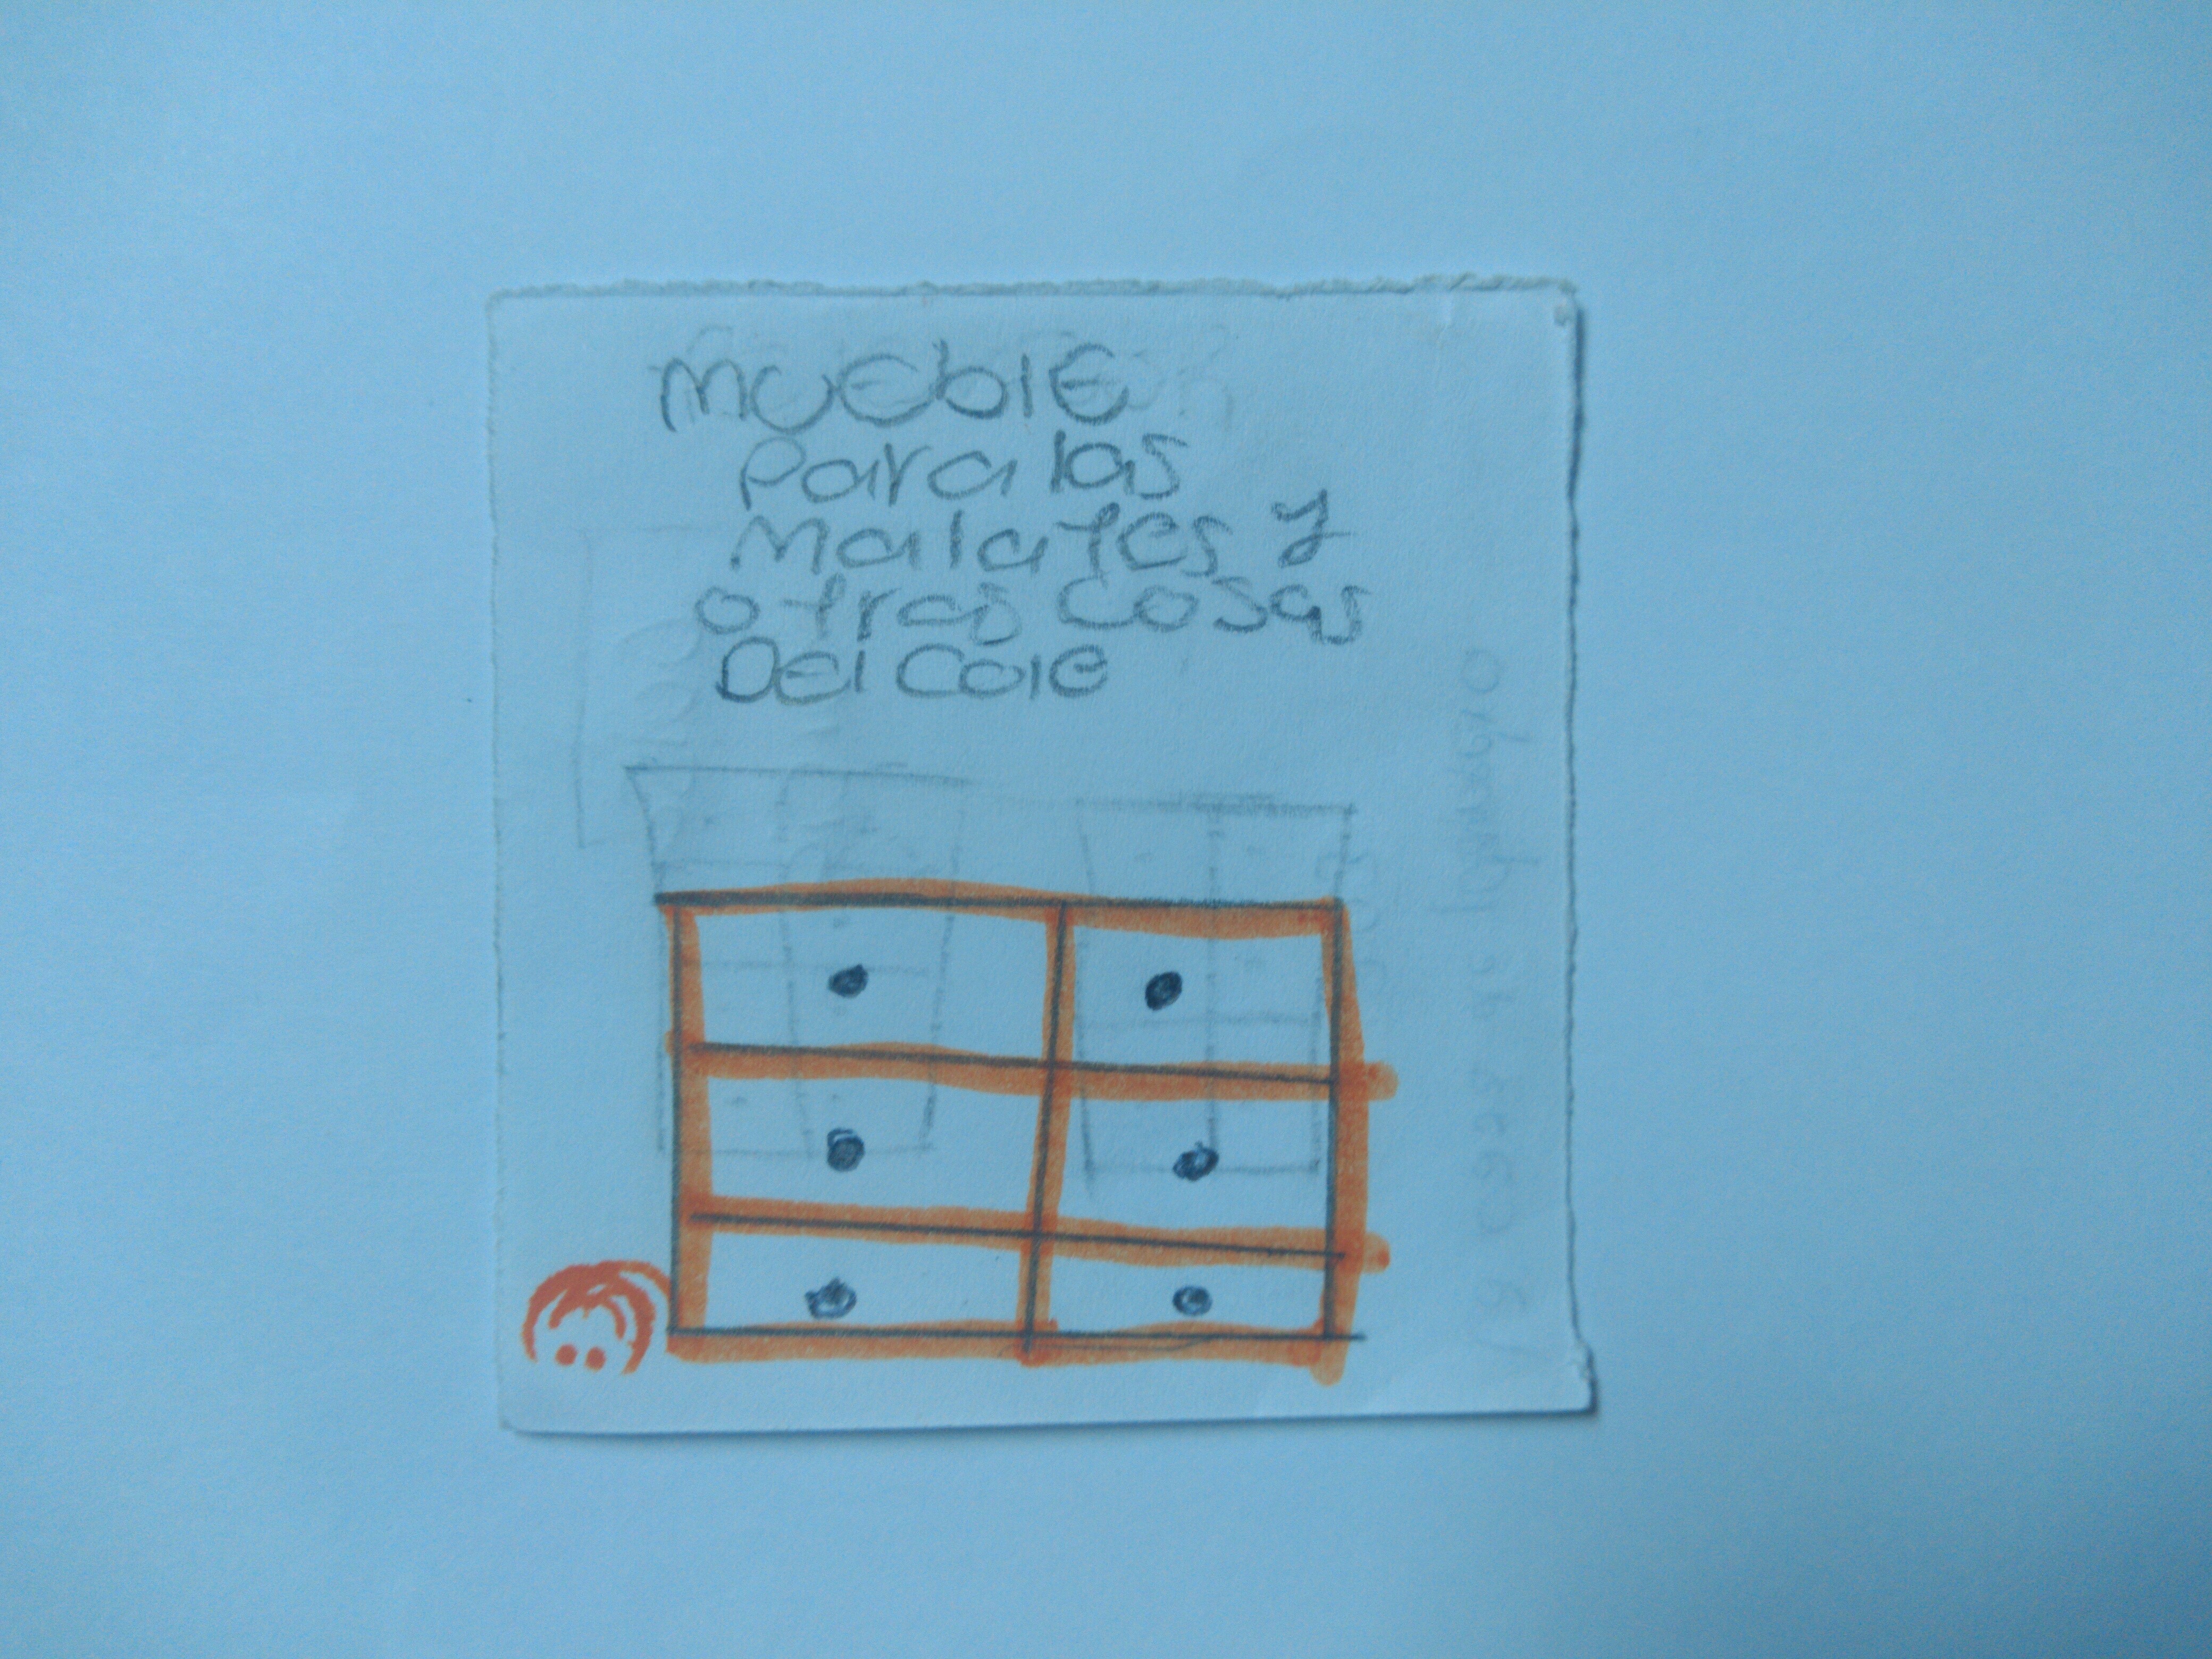 mUEblE
Para las
Malates y
otras cosas
Del Cole